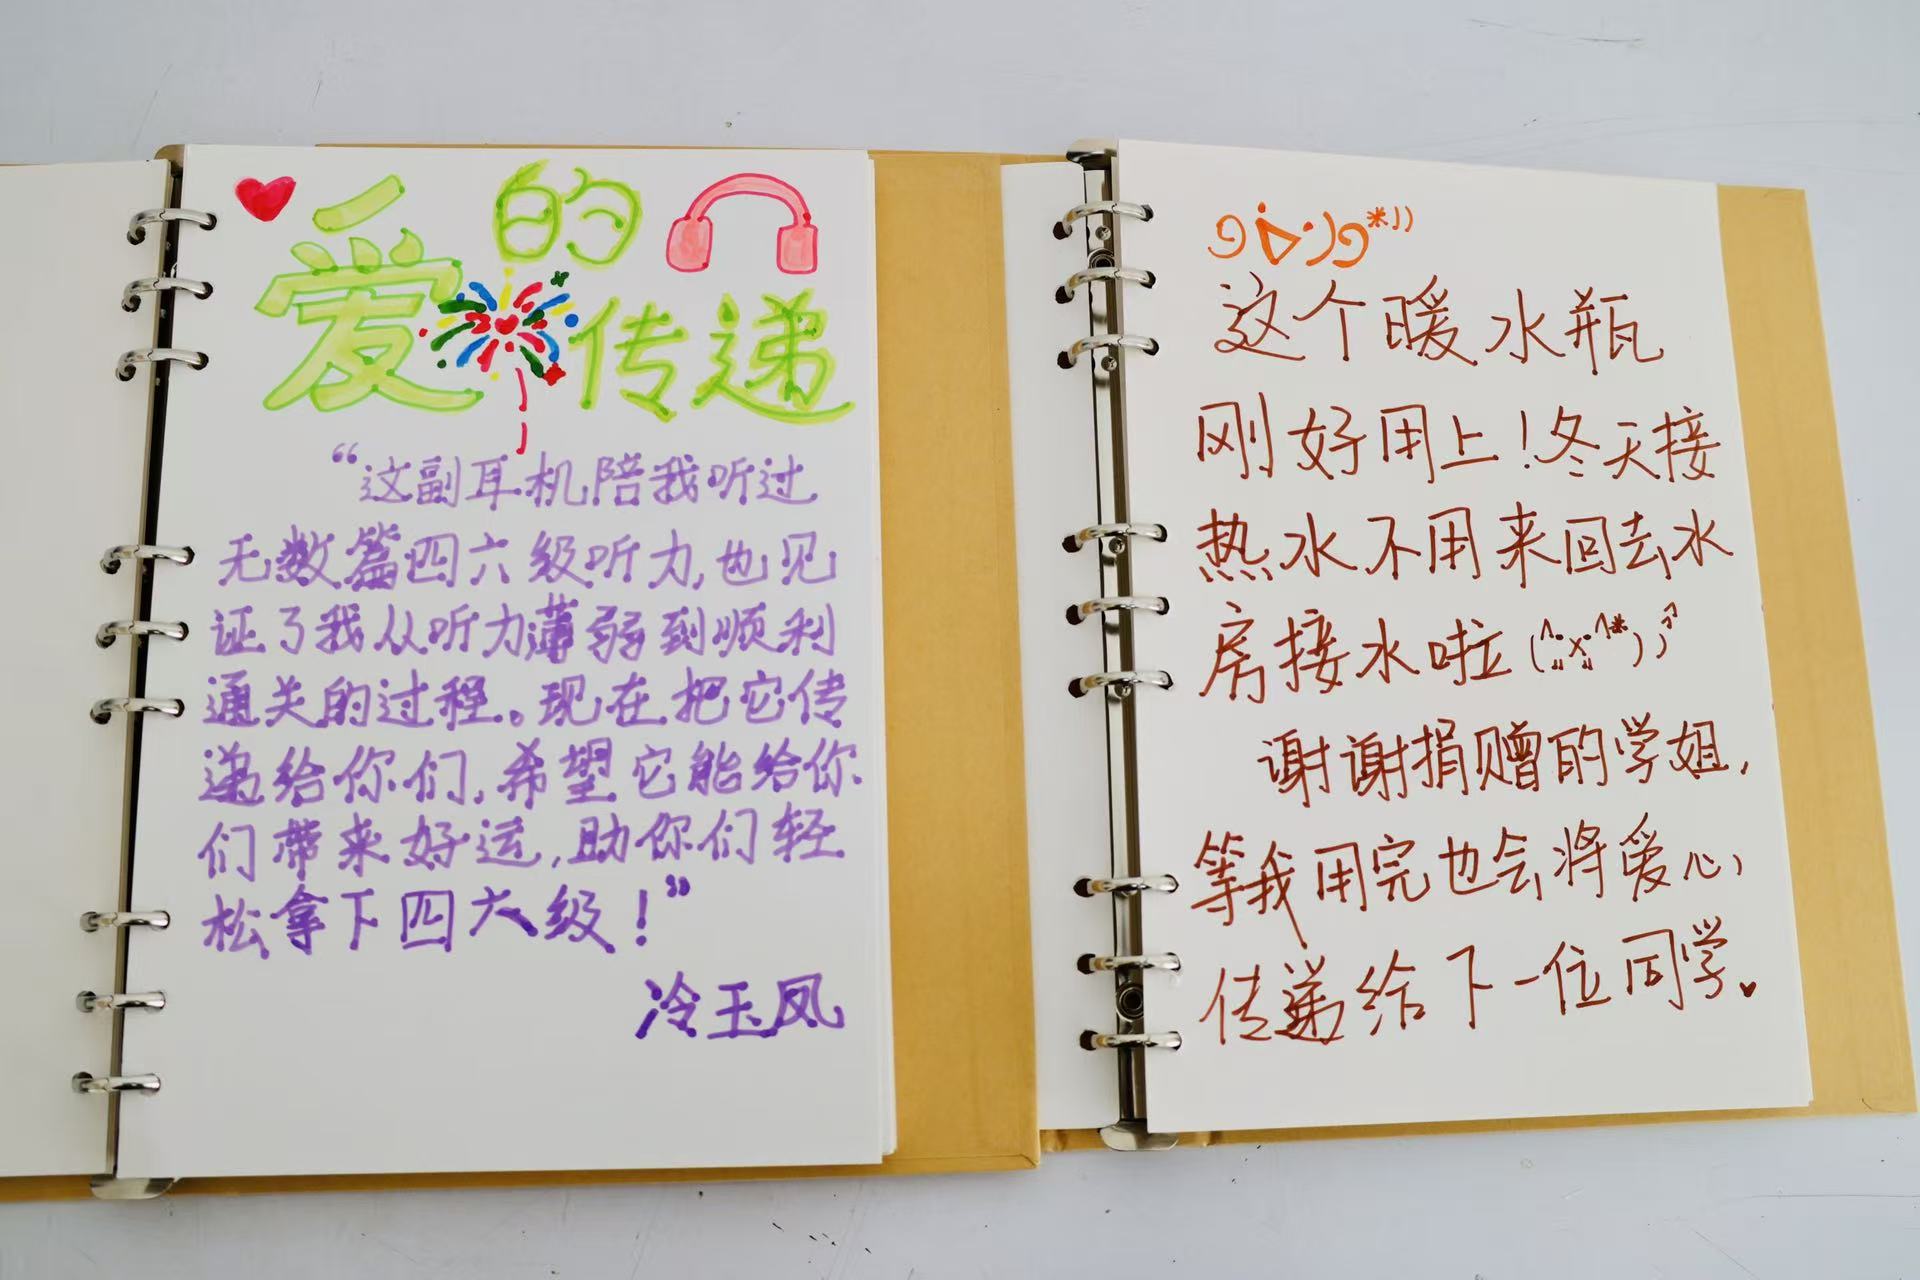 爱的传递
“这副耳机陪我听过
无数篇四六级听力,也见
证了我从听力薄弱到顺利
通关的过程。现在把它传
递给你们,希望它能给你
们带来好运,助你们轻
松拿下四六级!”
冷玉凤
这个暖水瓶
刚好用上!冬天接
热水不用来回去水
房接水啦
谢谢捐赠的学姐,
等我用完也会将爱心
传递给下一位同学.